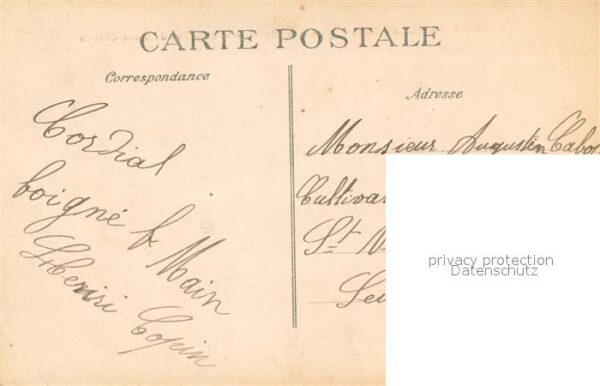 CARTE POSTALE
Correspondance
Adresse
Cordial
Poigné de Main
Henri Copin
Monsieur Augustin Cabo
Cultiva
St N
Sei
privacy protection
Datenschutz